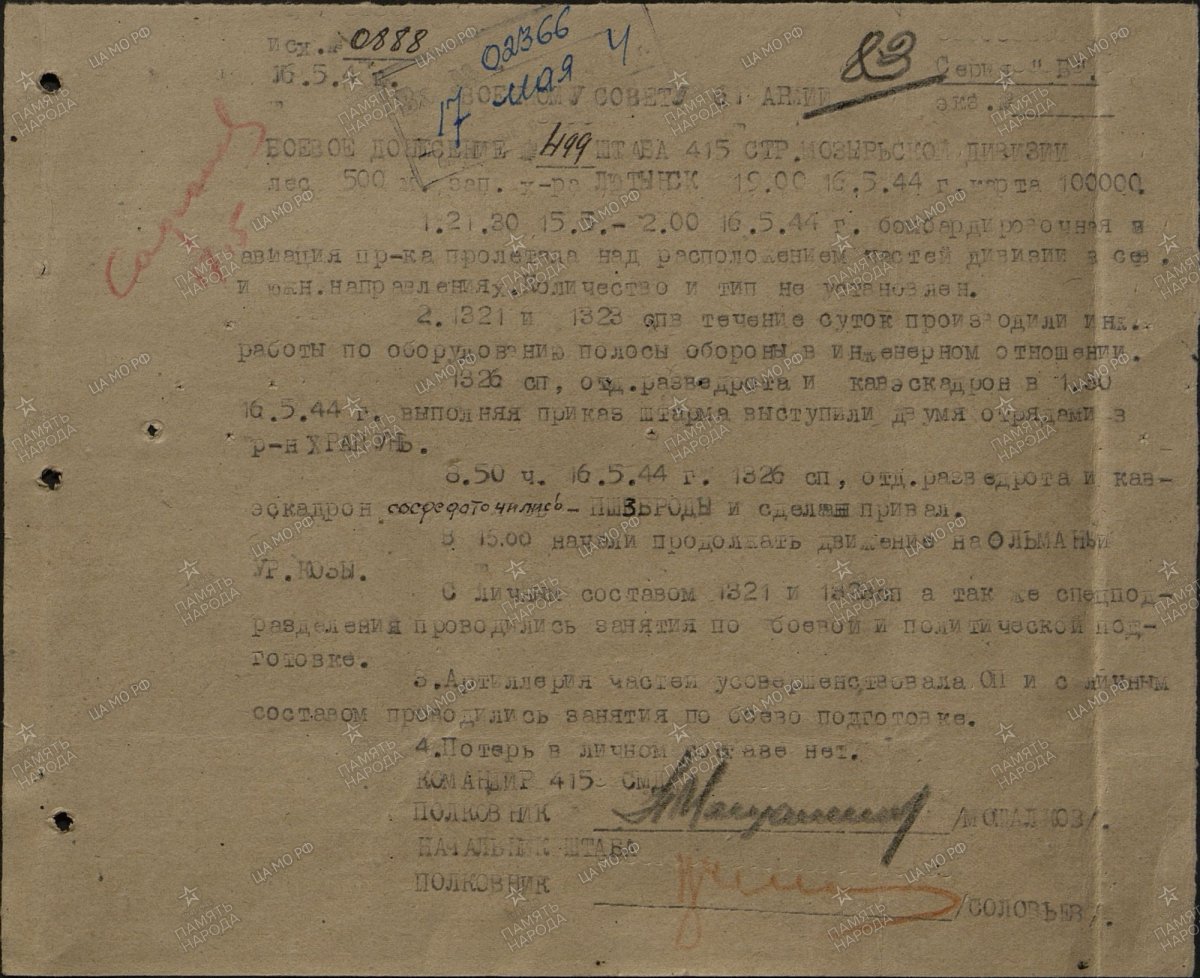 Исх.№ 0888
02366 ч
17 мая
83
Серия "В".
16.5.4 г.
экз.№
ВОЕННОМУ СОВЕТУ 61 АРМИИ
БОЕВОЕ ДОНЕСЕНИЕ № 499 ШТАБА 415 СТР.МОЗЫРЬСКОЙ ДИВИЗИИ
лес 500 м. зап. х-ра ЛЮТЫНСК 19.00 16.5.44 г.карта 100000.
1.21.30 15.5.- 2.00 16.5.44 г. бомбардировочная
авиация пр-ка пролетала над расположением частей дивизии в сев.
и южн.направлениях.Количество и тип не установлен.
2.1321 и 1323 спв течение суток производили инж.
работы по оборудованию полосы обороны в инженерном отношении.
1326 сп, отд.разведрота и кавэскадрон в 1.30
16.5.44 г. выполняя приказ штарма выступили двумя отрядами в
р-н ХРАПУНЬ.
8.50 ч. 16.5.44 г. 1326 сп, отд.разведрота и кав-
эскадрон сосредоточились - ПШЕБРОДЫ и сделали привал.
В 15.00 начали продолжать движение на ОЛЬМАНЫ и
УР.КОЗЫ.
С личным составом 1321 и 1323сп а так же спецпод-
разделения проводились занятия по боевой и политической под-
готовке.
3.Артиллерия частей усовершенствовала ОП и с личным
составом проводились занятия по боево подготовке.
4.Потерь в личном составе нет.
КОМАНДИР 415 СМД
ПОЛКОВНИК /МОЩАЛКОВ/.
НАЧАЛЬНИК ШТАБА
ПОЛКОВНИК /СОЛОВЬЕВ/.